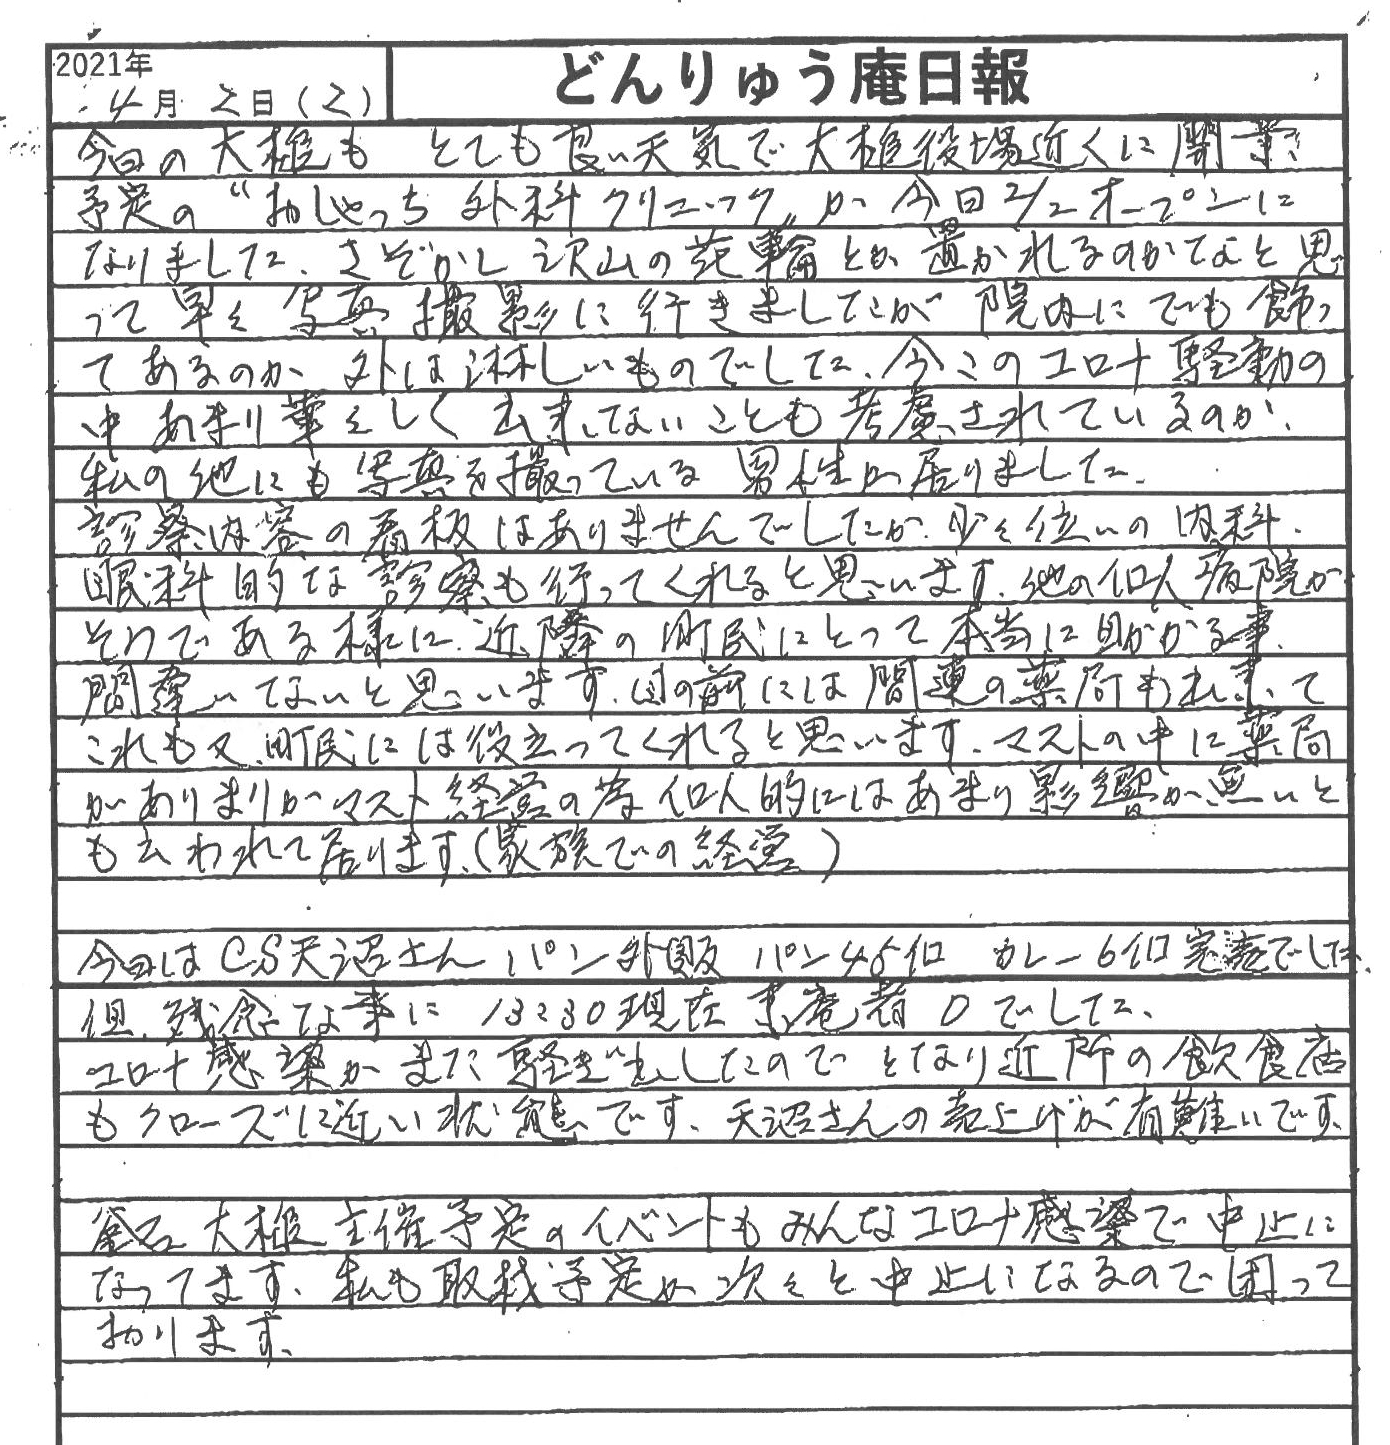 2021年
4月 2日(2)
どんりゅう庵日報
今日の大槌も とても良い天気で大槌役場近くに開業
予定の“おしゃっち外科クリニック”が今日4/2オープンに
なりました、さぞかし沢山の花輪とか置かれるのかなと思
って早々写真撮影に行きましたが院内にでも飾っ
てあるのか 外は淋しいものでした、今このコロナ騒動の
中あまり華々しく出来ないことも考慮されているのか、
私の他にも写真を撮っている男性が居りました、
診察内容の看板はありませんでしたが、少々位いの内科、
眼科的な診察も行ってくれると思います、他の個人病院が
そうである様に、近隣の町民にとって本当に助かる事、
間違いないと思います、目の前には関連の薬局も出来て
これも又、町民には役立ってくれると思います、マストの中に薬局
がありますがマスト経営の為個人的にはあまり影響が無いと
も云われて居ります、(家族での経営)
今日はCS天沼さん パン外販 パン45個 カレー6個完売でした、
但、残念な事に 13:30現在来庵者0でした、
コロナ感染がまた騒ぎ出したので となり近所の飲食店
もクローズに近い状態です、天沼さんの売上げが有難いです、
釜石大槌主催予定のイベントもみんなコロナ感染で中止に
なってます、私も取材予定が次々と中止になるので困って
おります、